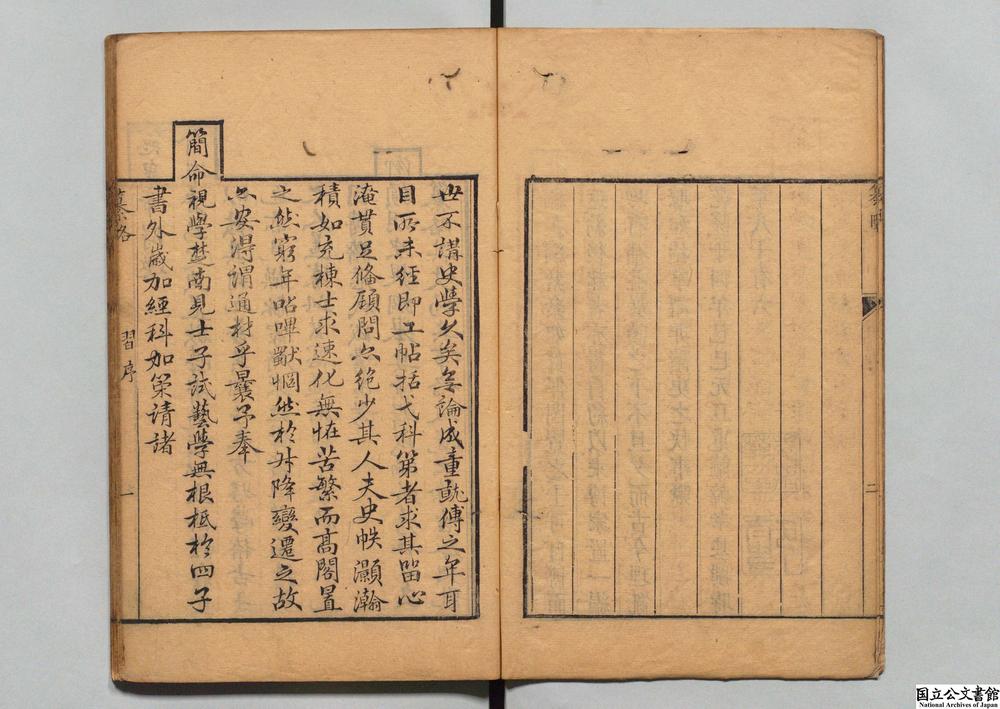 二
世不講史學久矣無論成童就傅之年耳
目所未經即工帖括弋科第者求其留心
淹貫足偹顧問亦絶少其人夫史帙灝瀚
積如充棟士求速化無怪苦繁而高閣置
之然窮年呫嗶猒惘然於升降變遷之故
亦安得謂通材乎曩予奉
簡命視學楚南見士子試藝學無根柢於四子
書外歲加經科加策請諸
纂畧 習序 一
国立公文書館
National Archives of Japan